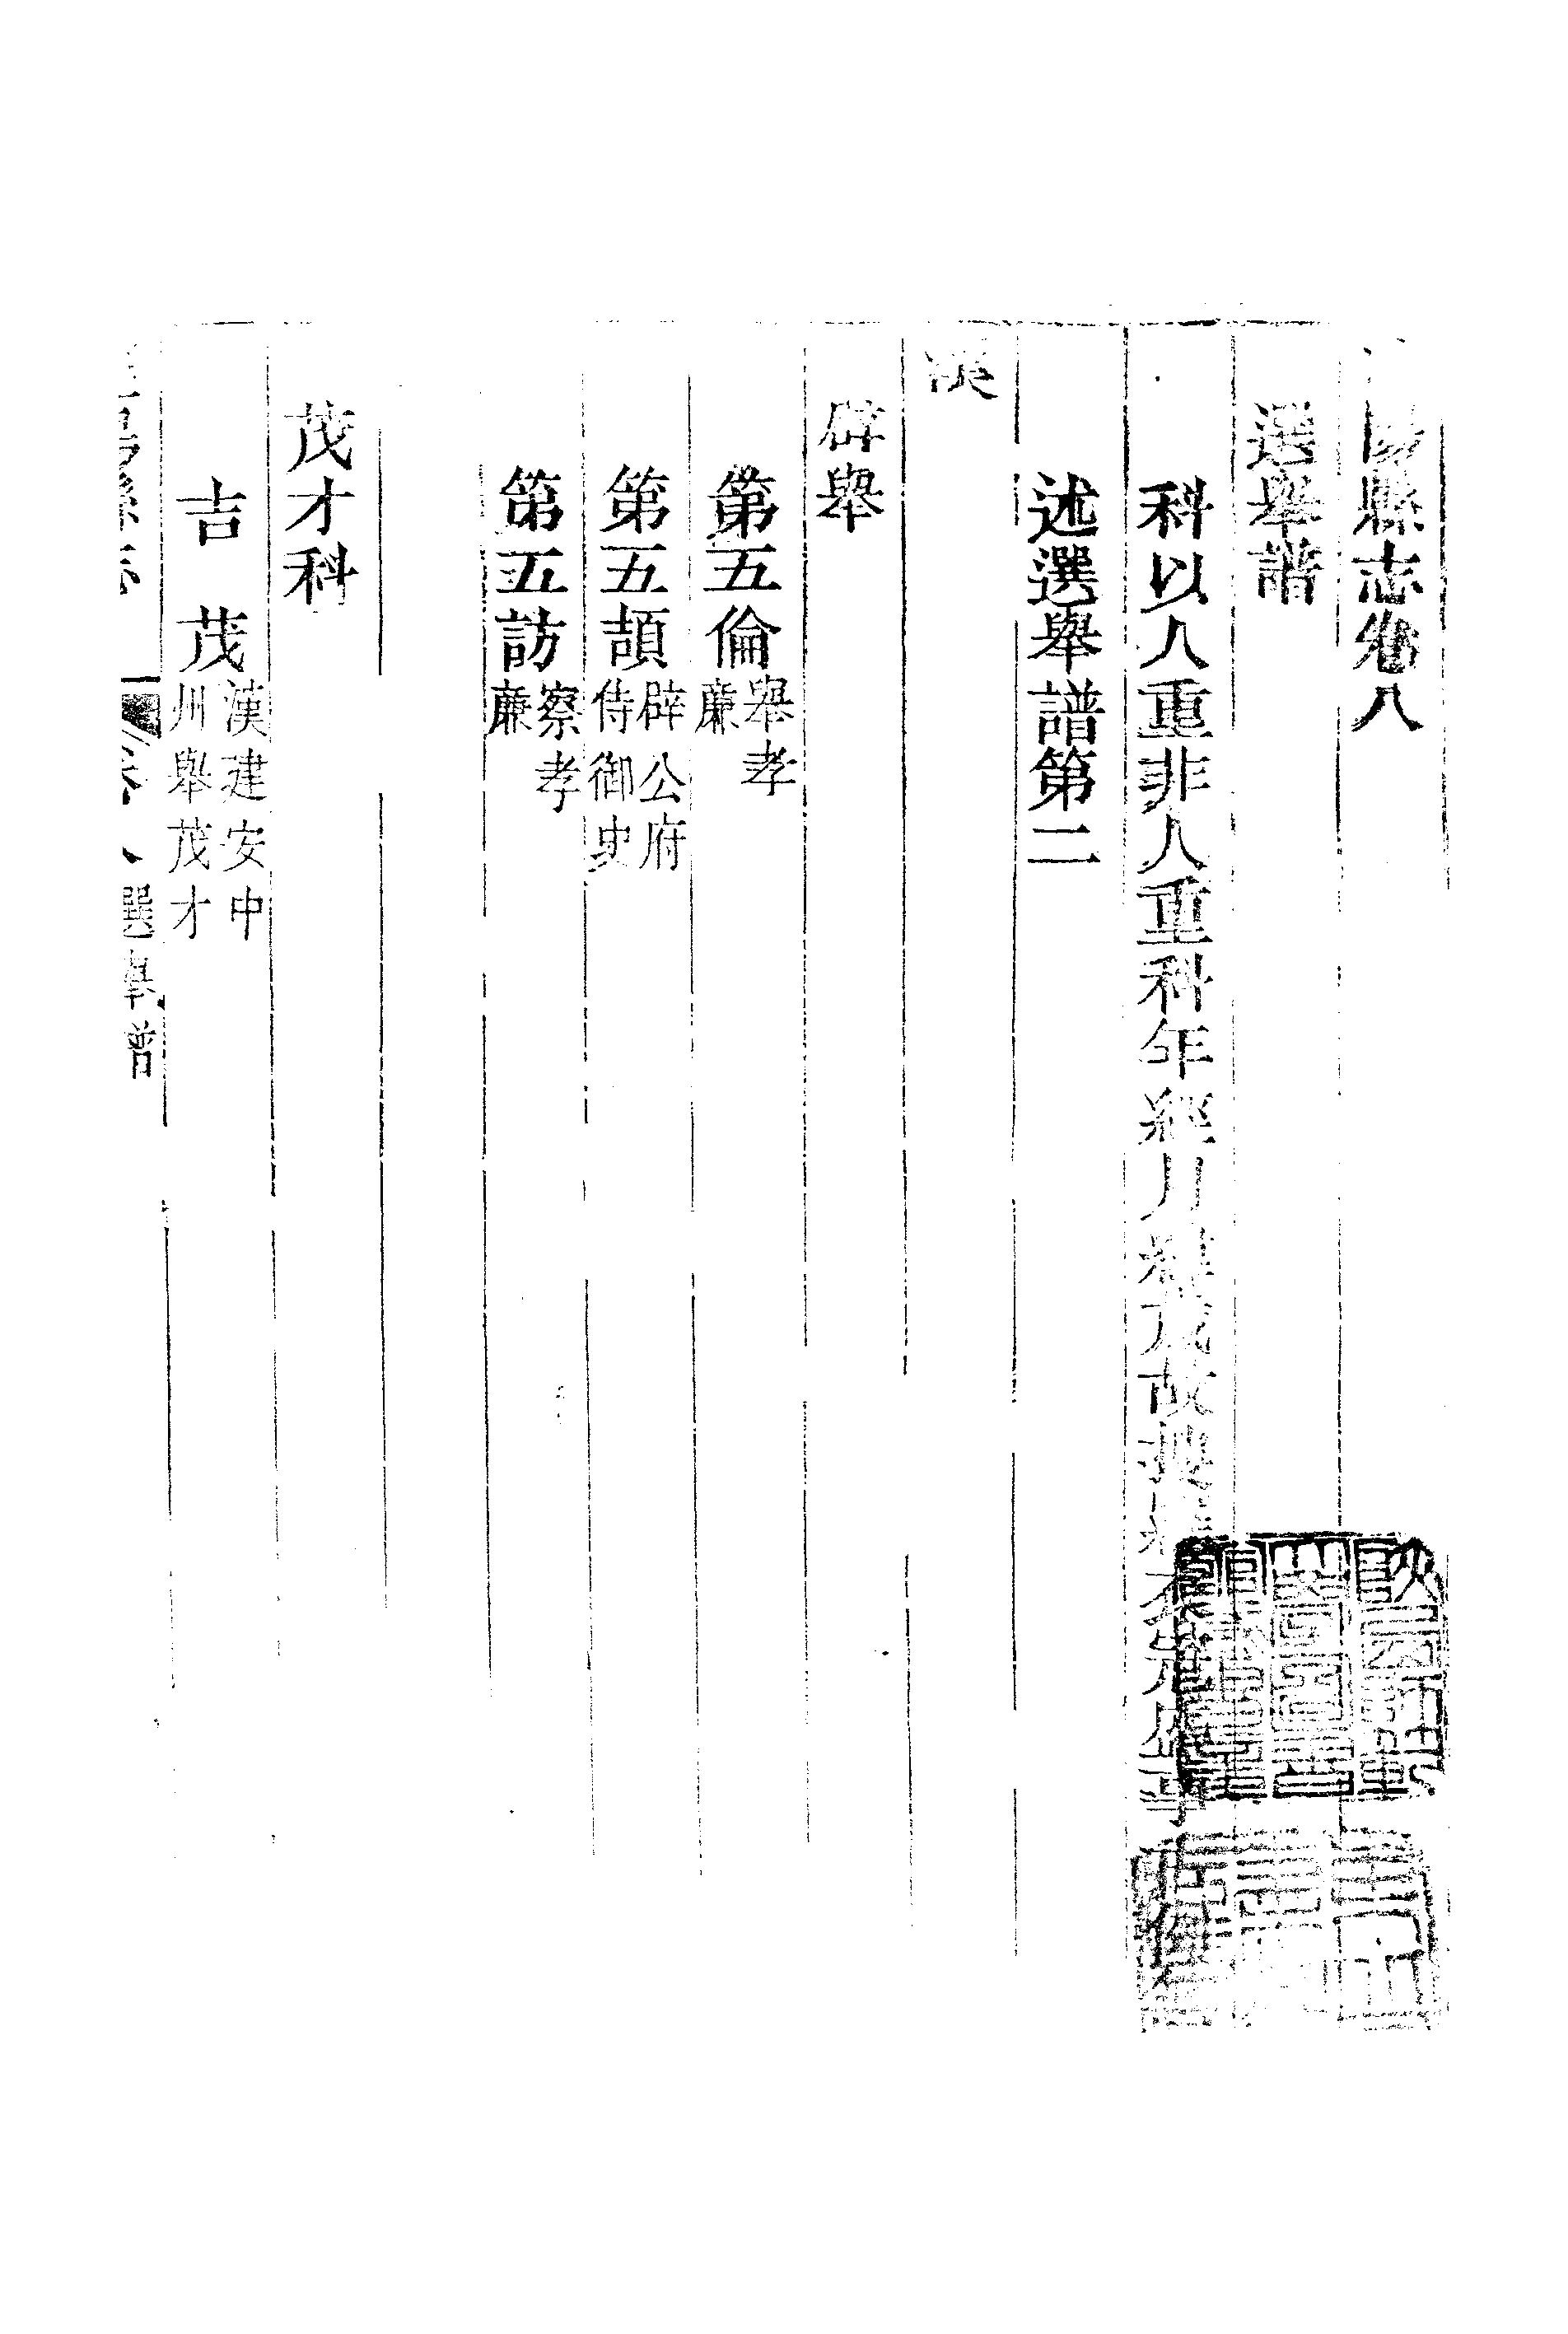 陽縣志卷八
選舉譜
科以人重非人重科年經月緯
故
述選舉譜第二
漢
辟舉
第五倫舉孝廉
第五頡辟公府侍御史
第五訪察孝廉
茂才科
吉茂漢建安中州舉茂才
縣志 卷八 選舉譜